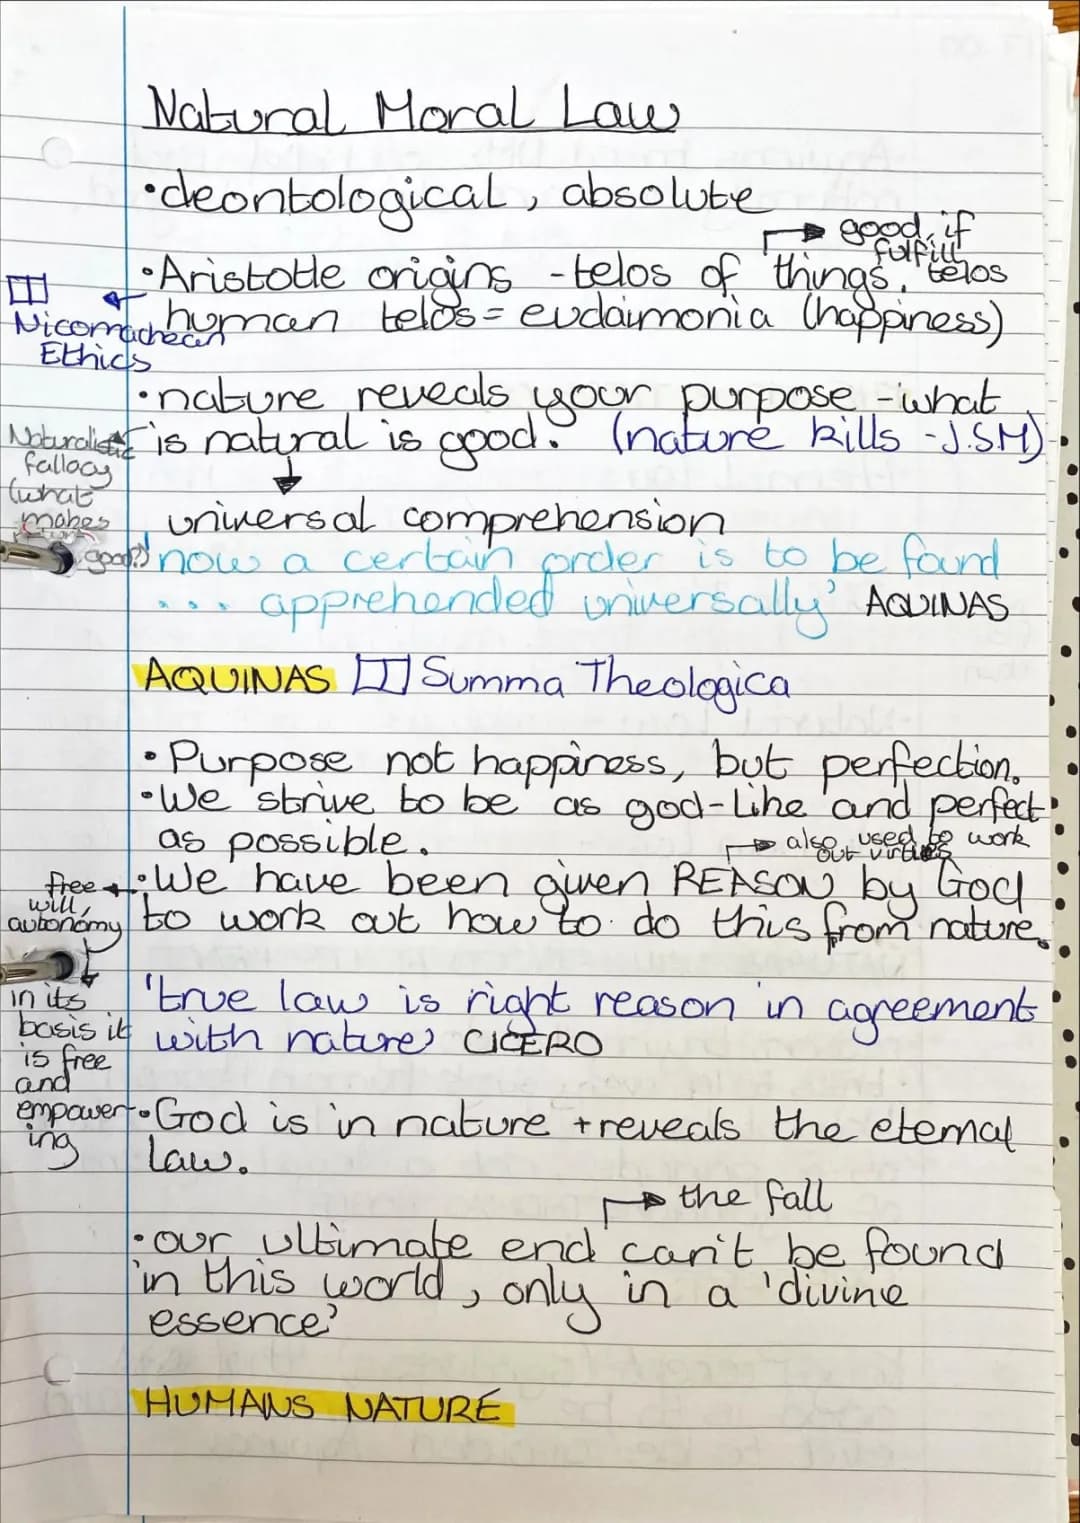 Natural Moral Law
•deontological, absolute
good if
fulfill
telos
•Aristotle origins - telos of things.
human telos = eudaimonia (happiness)
Nicomachean
Ethics
•nature reveals your purpose - what
is natural is good. (nature kills - J.S.M)
Naturalistic
fallacy
(what
makes
good?)
universal comprehension
'now a certain order is to be found
... apprehended universally' AQUINAS
AQUINAS Summa Theologica
•Purpose not happiness, but perfection.
•We strive to be as god-like and perfect
as possible.
also used to work
out virtues
•We have been given REASON by God
to work out how to do this from nature.
free
will,
autonomy
in its
basis it
is free
and
empower-
ing
'true law is right reason in agreement
with nature' CICERO
•God is in nature + reveals the eternal
law.
the fall
•our ultimate end can't be found
in this world, only in a 'divine
essence'
HUMANS NATURE